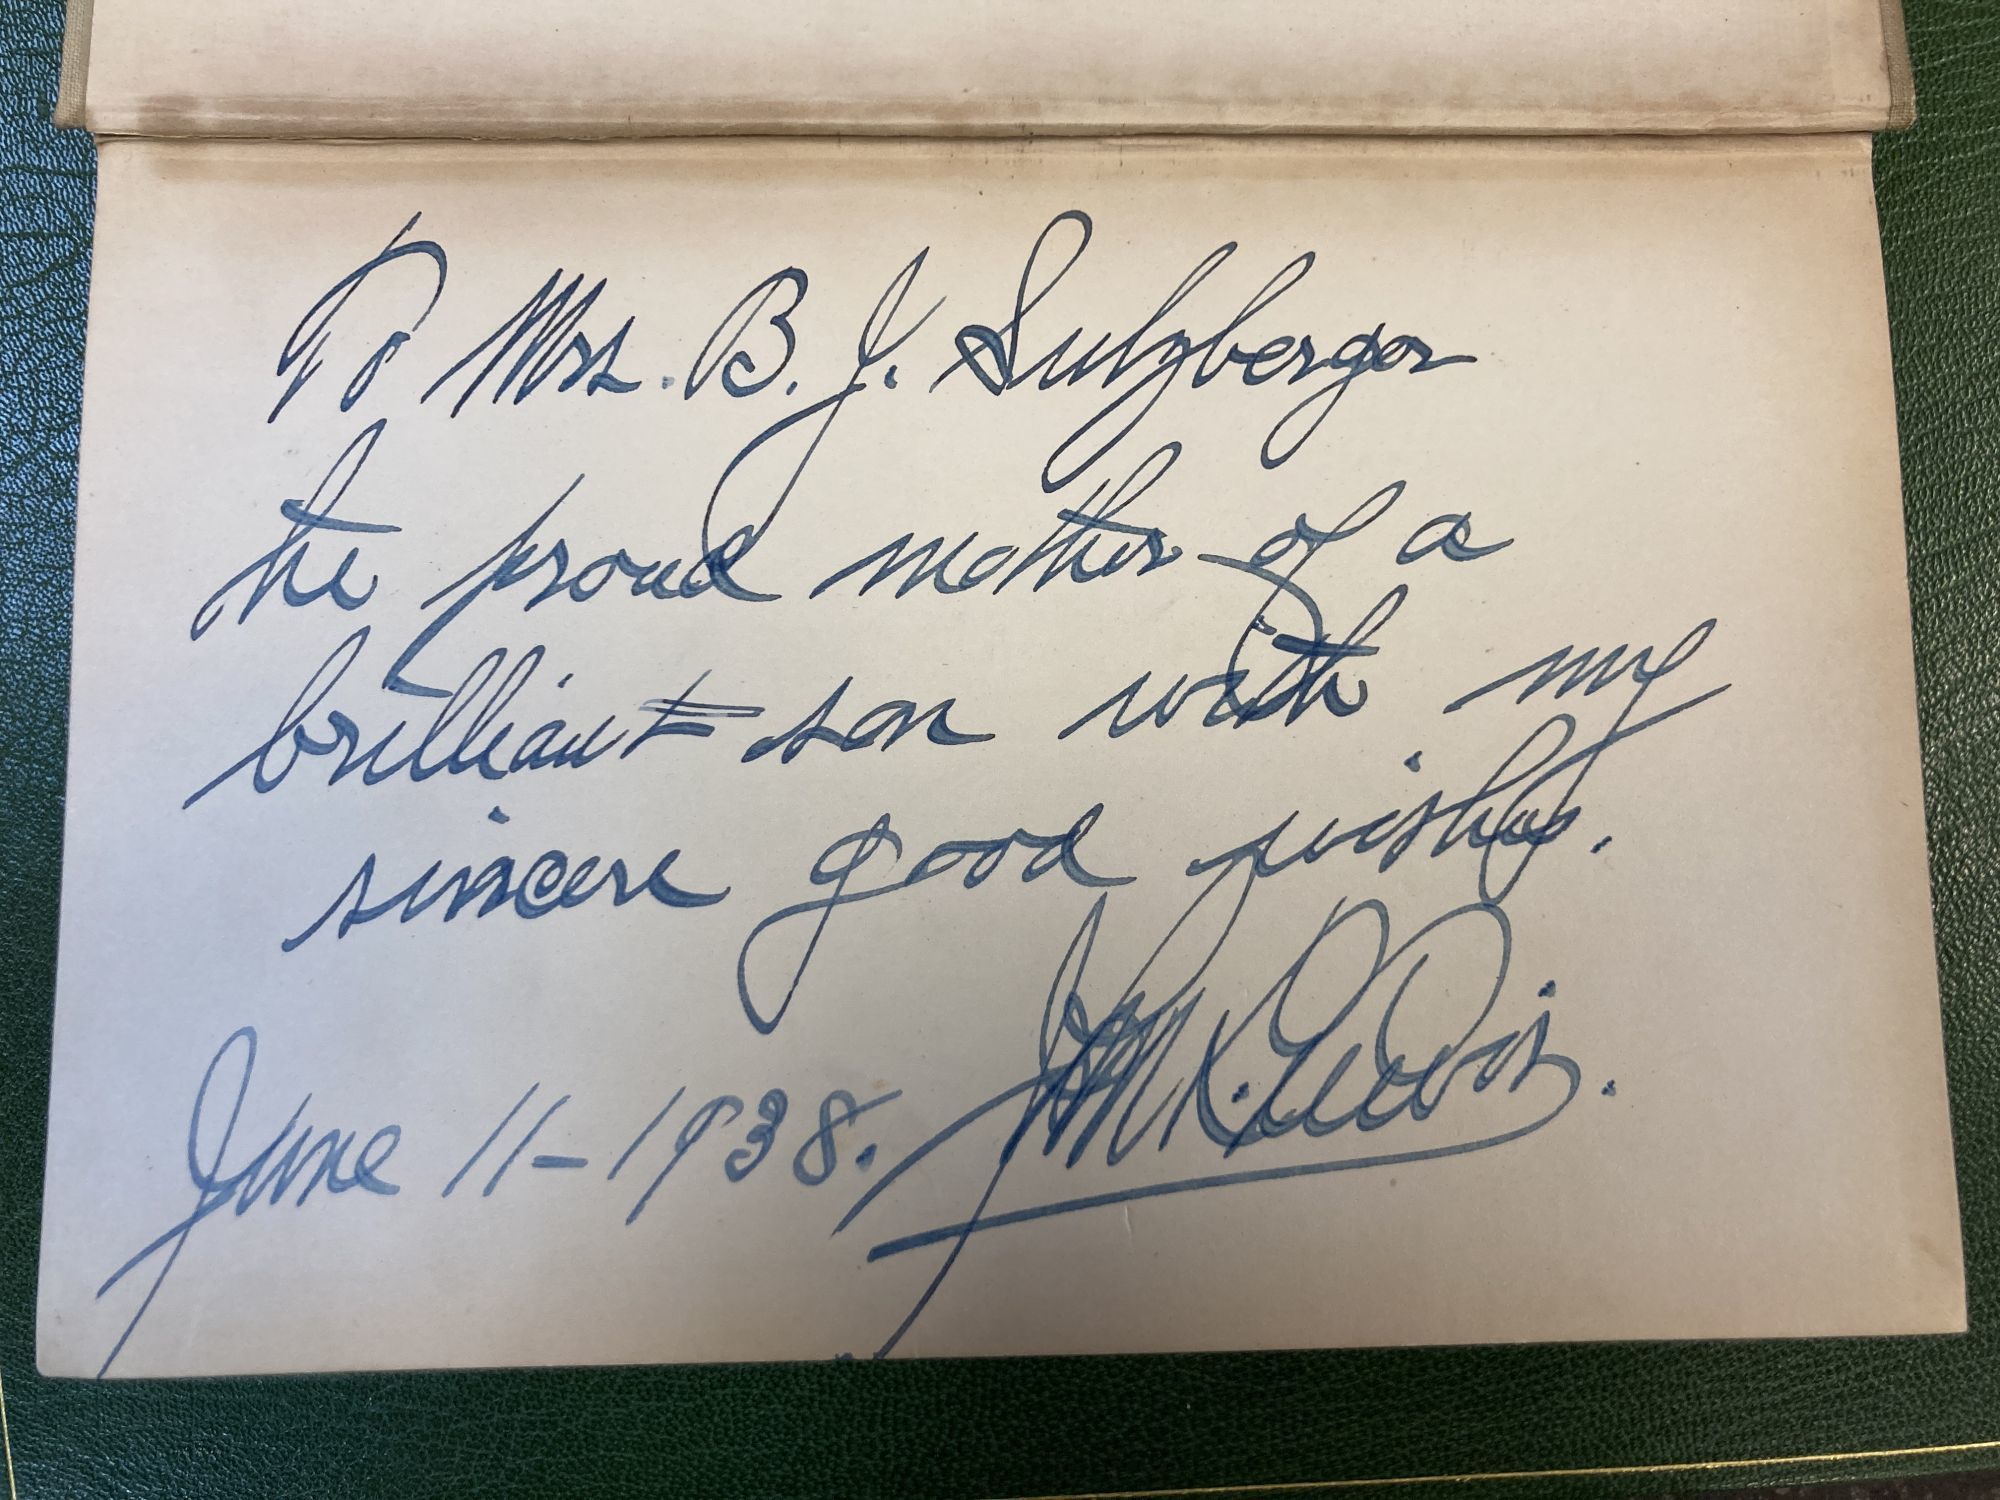 To Mrs. B. J. Sulzberger
the proud mother of a
brilliant son with my
sincere good wishes.
June 11-1938.